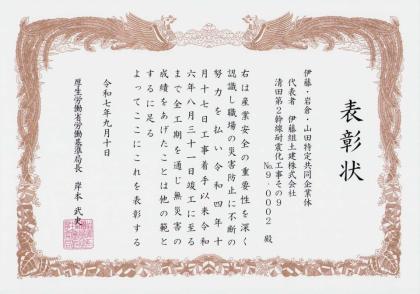 表彰状
伊藤・岩倉・山田特定共同企業体
代表者 伊藤組土建株式会社
清田第2幹線耐震化工事その9
№9-0002 殿
右は産業安全の重要性を深く
認識し職場の災害防止に不断の
努力を払い令和四年十
月十七日工事着手以来令和
六年八月三十一日竣工に至る
まで全工期を通じ無災害の
成績をあげたことは他の範と
するに足る
よってここにこれを表彰する
令和七年九月十日
厚生労働省労働基準局長 岸本 武史